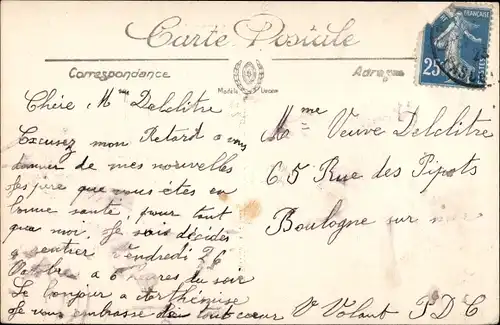 Carte Postale
Correspondance
Adresse
Modèle
FRANÇAISE
25
POSTES
Chère Mme Delclitre
Excusez mon Retard a vous
donner de mes nouvelles
J'espère que vous êtes en
bonne santé, pour tant
que moi. Je suis décidés
a rentrer Vendredi 26
Octobre a 6 heures du soir
Le bonjour a Arthémise
Je vous embrasse de tout cœur
V Volant
Mme Veuve Delclitre
65 Rue des Pipots
Boulogne sur mer
P D C